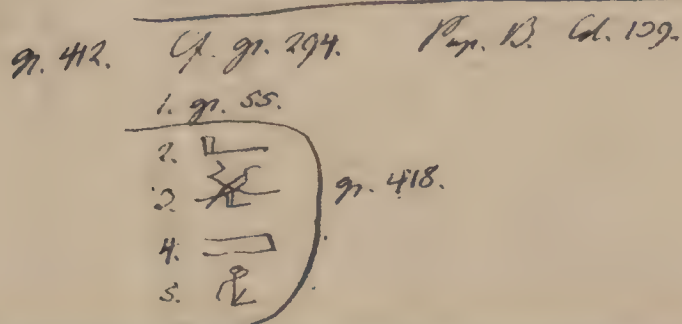 gr. 412. Cf. gr. 294. Pap. B. Col. 109.
1. gr. 55.
2.
3.
4.
5.
gr. 418.